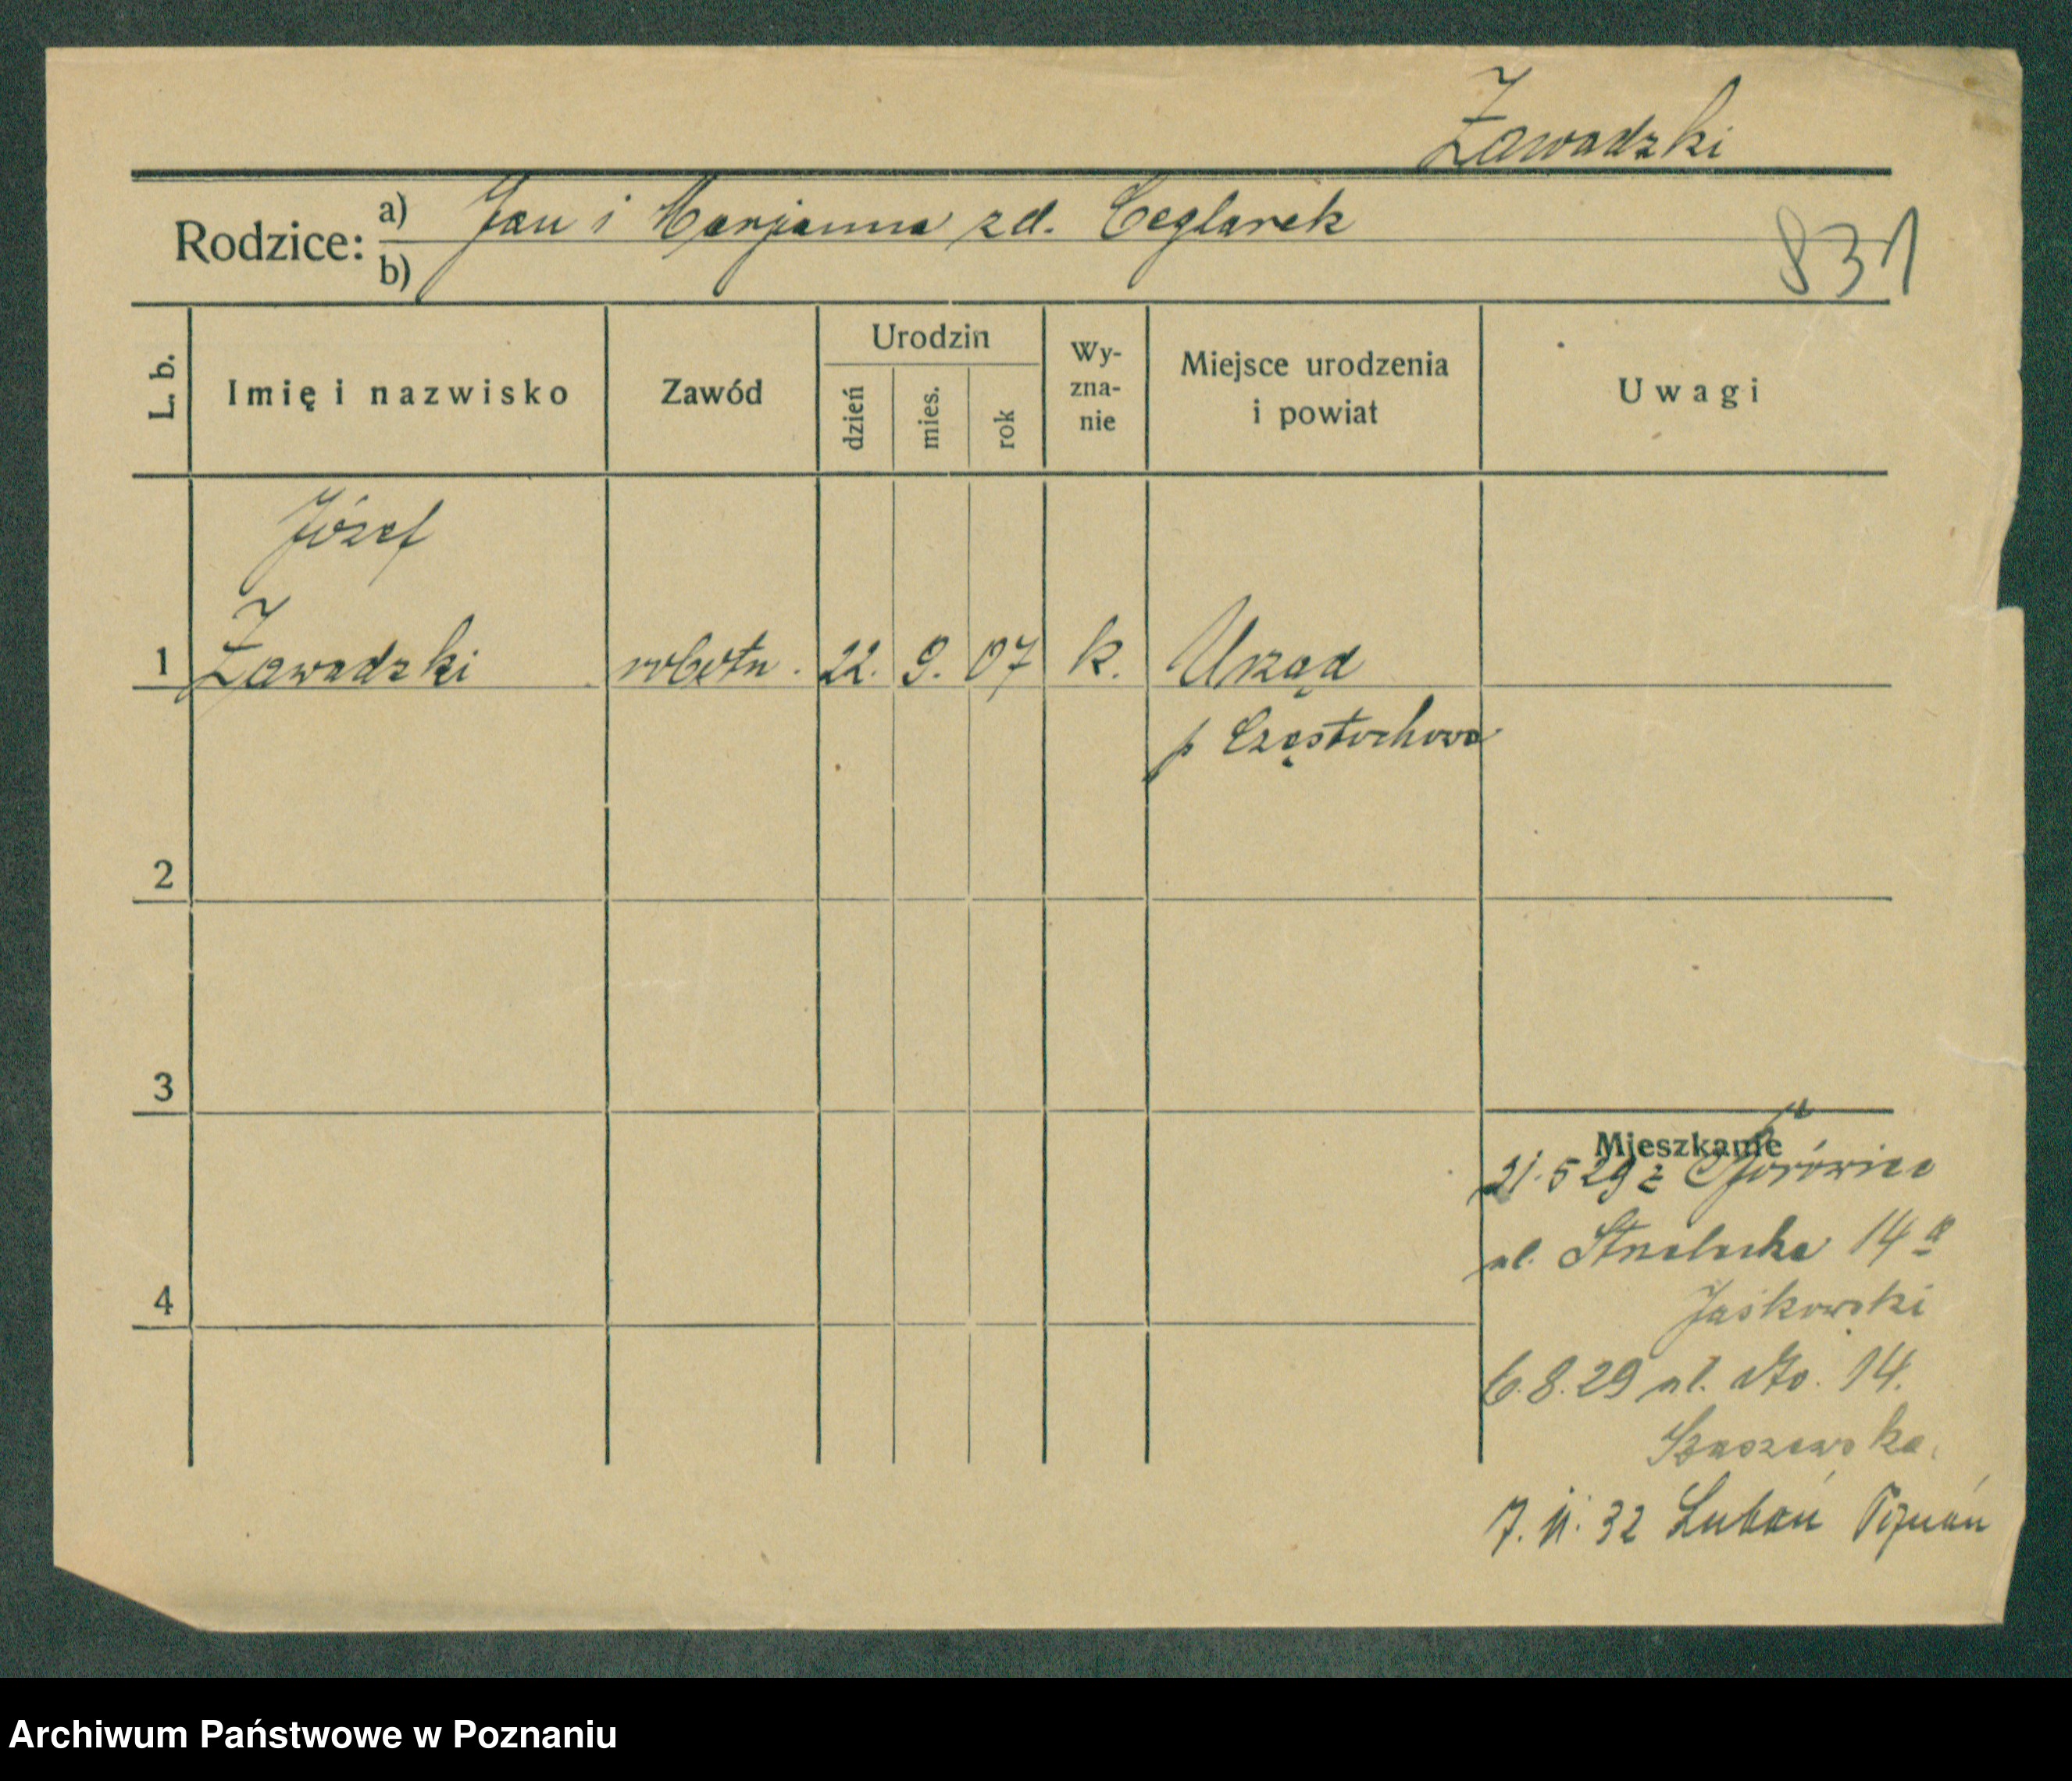 Zawadzki
Rodzice: a) Jan i Marjanna zd. Ceglarek
b)
831
L. b.
Imię i nazwisko
Zawód
Urodzin
dzień
mies.
rok
Wy-
zna-
nie
Miejsce urodzenia
i powiat
Uwagi
Józef
1 Zawadzki robotn. 22. 9. 07 k. Urząd
p Częstochowa
2
3
4
Mieszkanie
21.5 29 z
ul. Strzelecka 14 a
Jaśkowski
6.8.29 ul. dto. 14.
7.11.32 Luboń Poznań
Archiwum Państwowe w Poznaniu